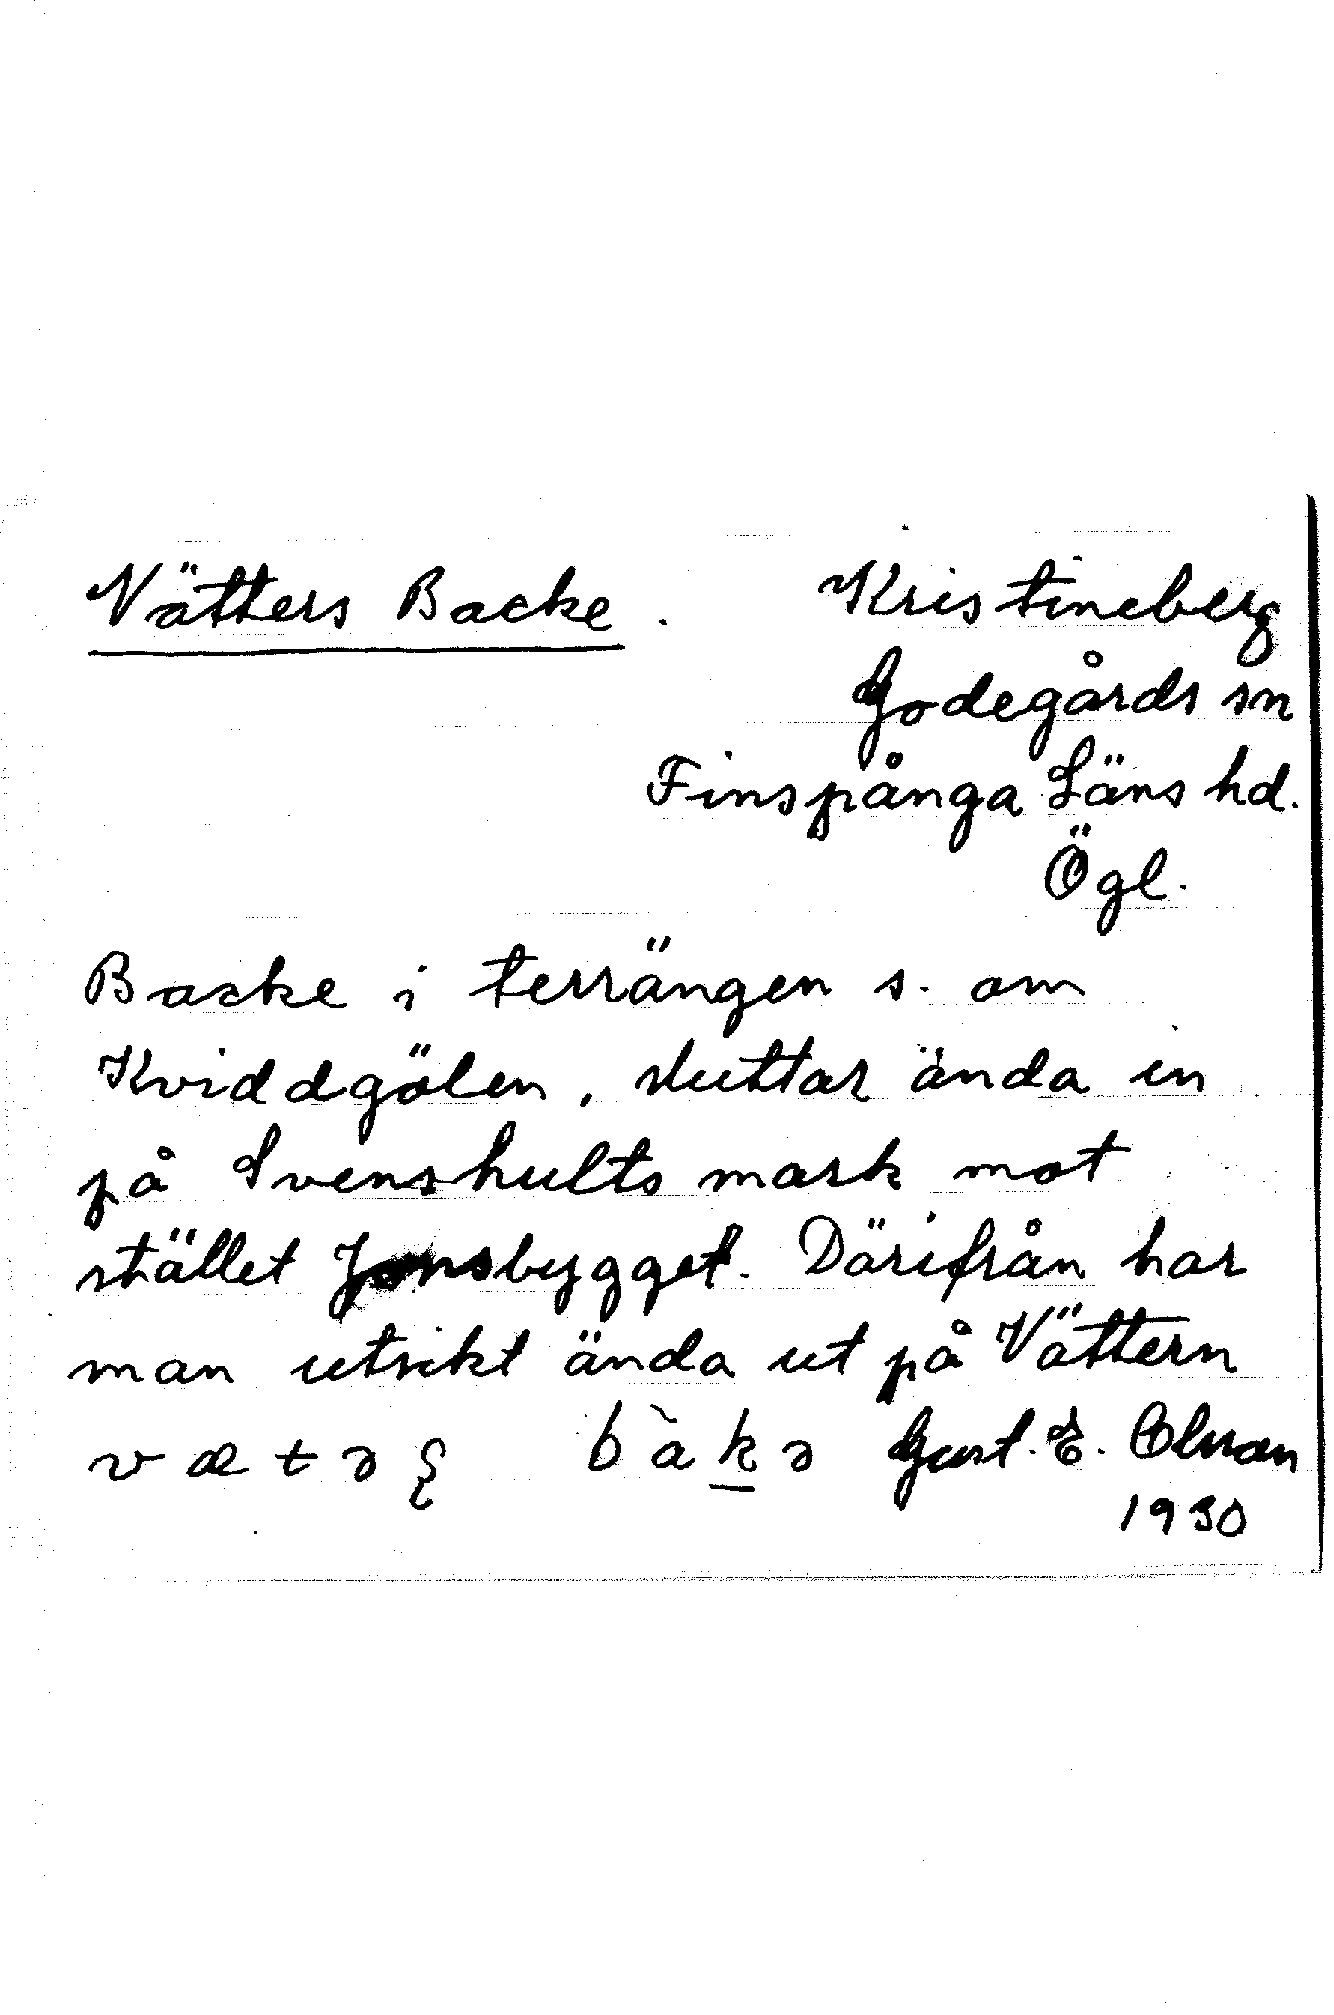 Vätters Backe. Kristineberg
Godegårds sn
Finspånga Läns hd.
Ögl.
Backe i terrängen s. om
Kviddgölen, sluttar ända in
på Svenshults mark mot
stället Jonsbygget. Därifrån har
man utsikt ända ut på Vättern
bàkə Gust. E. Olsson
1930